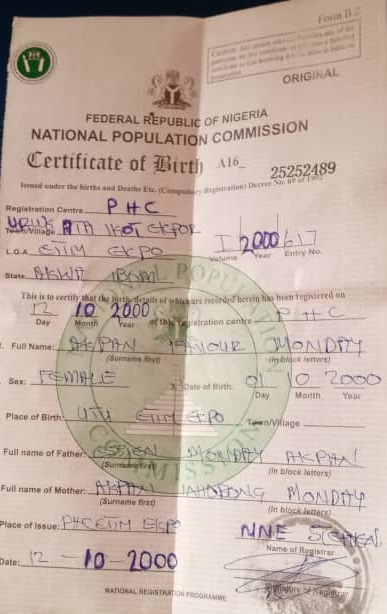 Form B.2
ORIGINAL
FEDERAL REPUBLIC OF NIGERIA
NATIONAL POPULATION COMMISSION
Certificate of Birth A16_ 25252489
Issued under the births and Deaths Etc. (Compulsory Registration) Decree No. 69 of 1992
Registration Centre PHC
Town/Village URUK ATA IKOT EKPOR
I 2000 617
Volume Year Entry No.
L.G.A ETIM EKPO
State AKWA IBOM
This is to certify that the birth, details of which are recorded herein has been registered on
12 10 2000 at this registration centre PHC
Day Month Year
1. Full Name: AKPAN FAVOUR MONDAY
(Surname first) (in block letters)
Sex: FEMALE 3. Date of Birth: 01 10 2000
Day Month Year
Place of Birth: UTU ETIM EKPO Town/Village
Full name of Father: ESSIEN MONDAY AKPAN
(Surname first) (In block letters)
Full name of Mother: AKPAN MONDAY
(Surname first) (In block letters)
Place of Issue: PHC ETIM EKPO NNE
Name of Registrar
Date: 12 - 10 - 2000
Signature of Registrar
NATIONAL REGISTRATION PROGRAMME
NATIONAL POPULATION COMMISSION